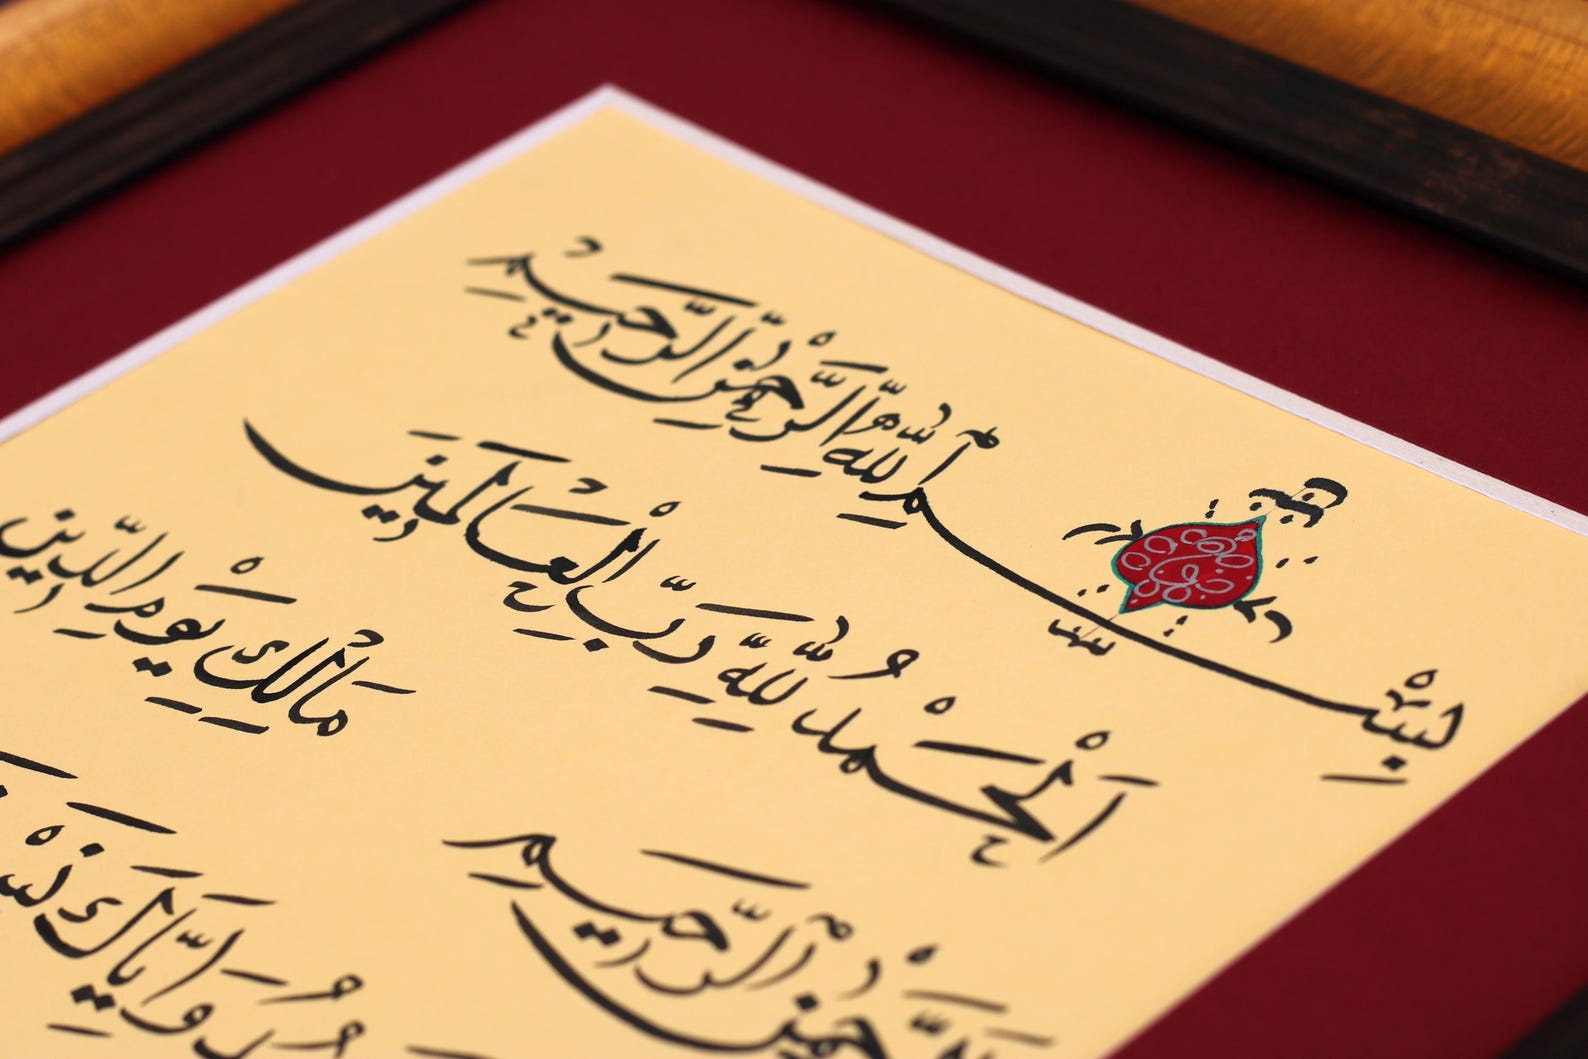 بِسْمِ اللَّهِ الرَّحْمٰنِ الرَّحِيمِ
اَلْحَمْدُ لِلَّهِ رَبِّ الْعَالَمِينَ
الرَّحْمٰنِ الرَّحِيمِ مَالِكِ يَوْمِ الدِّينِ
وَاِيَّاكَ